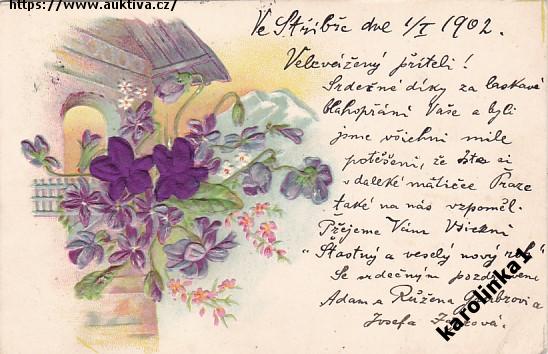 https://www.auktiva.cz/
Ve Stříbře dne 1/I 1902.
Velevážený příteli!
Srdečné díky za laskavé
blahopřání Vaše a byli
jsme všichni mile
potěšeni, že jste si
v daleké mátičce Praze
také na nás vzpoměl.
Přejeme Vám Všichni
"Šťastný a veselý nový rok"
Se srdečným pozdravem
Adam a Růžena
Josefa
karolinka1